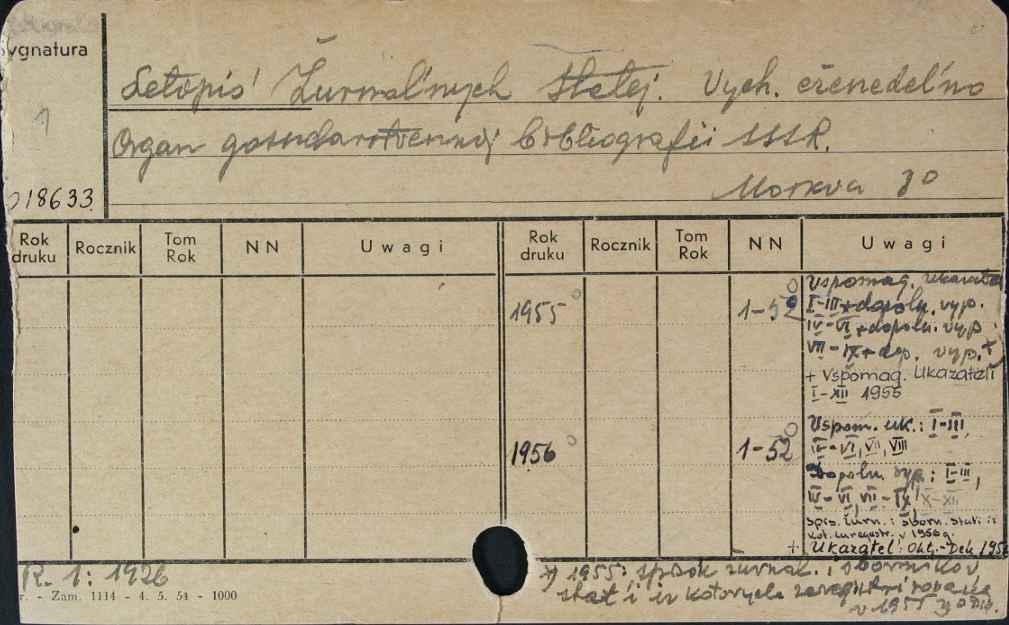 ygnatura
1
018633
Letopis' Žurnal'nych Statej. Vych. eženedel'no
Organ gosudarstvennoj bibliografii SSSR.
Moskva 8°
Rok druku Rocznik Tom Rok NN Uwagi Rok druku Rocznik Tom Rok NN Uwagi
1955 1-52 Vspomag. Ukazateli
I-III + dopoln. vyp.
IV-VI + dopoln. vyp.
VII-IX + dop. vyp. +
+ Vspomag. Ukazateli
I-XII 1955
1956 1-52 Vspom. uk.: I-III,
IV-VI, VII, VIII
Dopoln. vyp.: I-III,
IV-VI, VII-IX, X-XII
spis. žurn. i sborn. stati iz
kot. zaregistr. v 1956 g.
+ Ukazatel': Okt.-Dek 1956
R. 1: 1926
r. - Zam. 1114 - 4. 5. 54 - 1000
*) 1955: spisok žurnal. i sbornikov
stat'i iz kotorych zaregistrirovana
v 1955 godu.